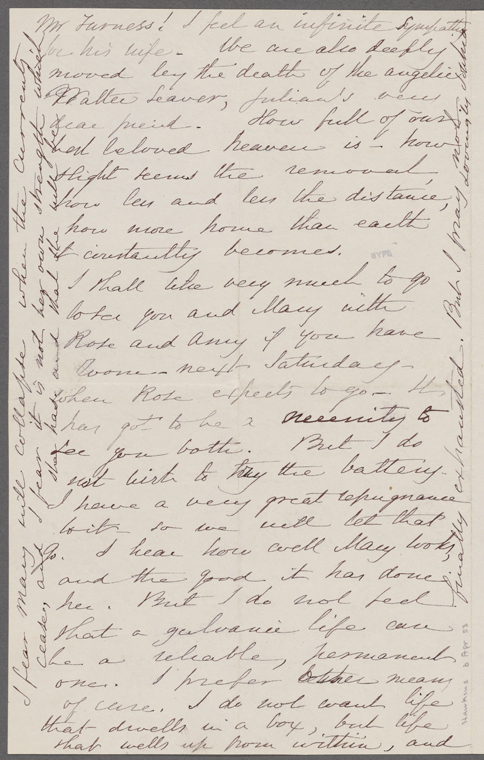 Mr Furness! I feel an infinite Sympathy
for his wife - We are also deeply
moved by the death of the angelic
Walter Seaver, Julian's very
dear friend. How full of our
best beloved heaven is - how
slight seems the removal,
how less and less the distance,
how more home than earth
it constantly becomes.
I shall like very much to go
to see you and Mary with
Rose and Amy if you have
room - next Saturday -
when Rose expects to go - It
has got to be a necessity to
see you both. But I do
not wish to try the battery
I have a very great repugnance
to it so we will let that
go. I hear how well Mary looks,
and the good it has done
her. But I do not feel
that a galvanic life can
be a reliable, permanent
one. I prefer other means
of cure. I do not want life
that dwells in a box, but life
that wells up from within, and
I fear many will collapse when the current
cease, and I fear it is not her own strength which
she has and that she will be
finally exhausted. But I pray not.
Lovingly Sophia
NYPL
Hawkins 6 Apr 53